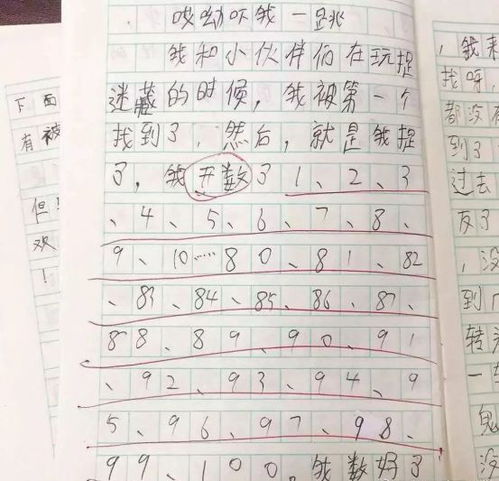 哎呦吓我一跳
我和小伙伴们在玩捉
迷藏的时候，我被第一个
找到了，然后，就是我捉
了，我开数了1、2、3
、4、5、6、7、8、
9、10……80、81、82
、83、84、85、86、87、
88、89、90、91
、92、93、94、9
5、96、97、98、
99、100，我数好了
下面
有被
但！
欢
！
，我来
找呀，
都没有
到了
过去
友了
，没
到
转来
一
鬼
没